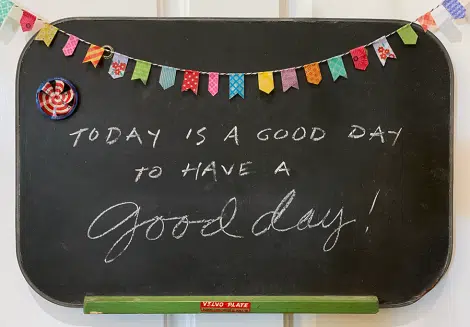 TODAY IS A GOOD DAY
TO HAVE A
good day!
VELVO PLATE